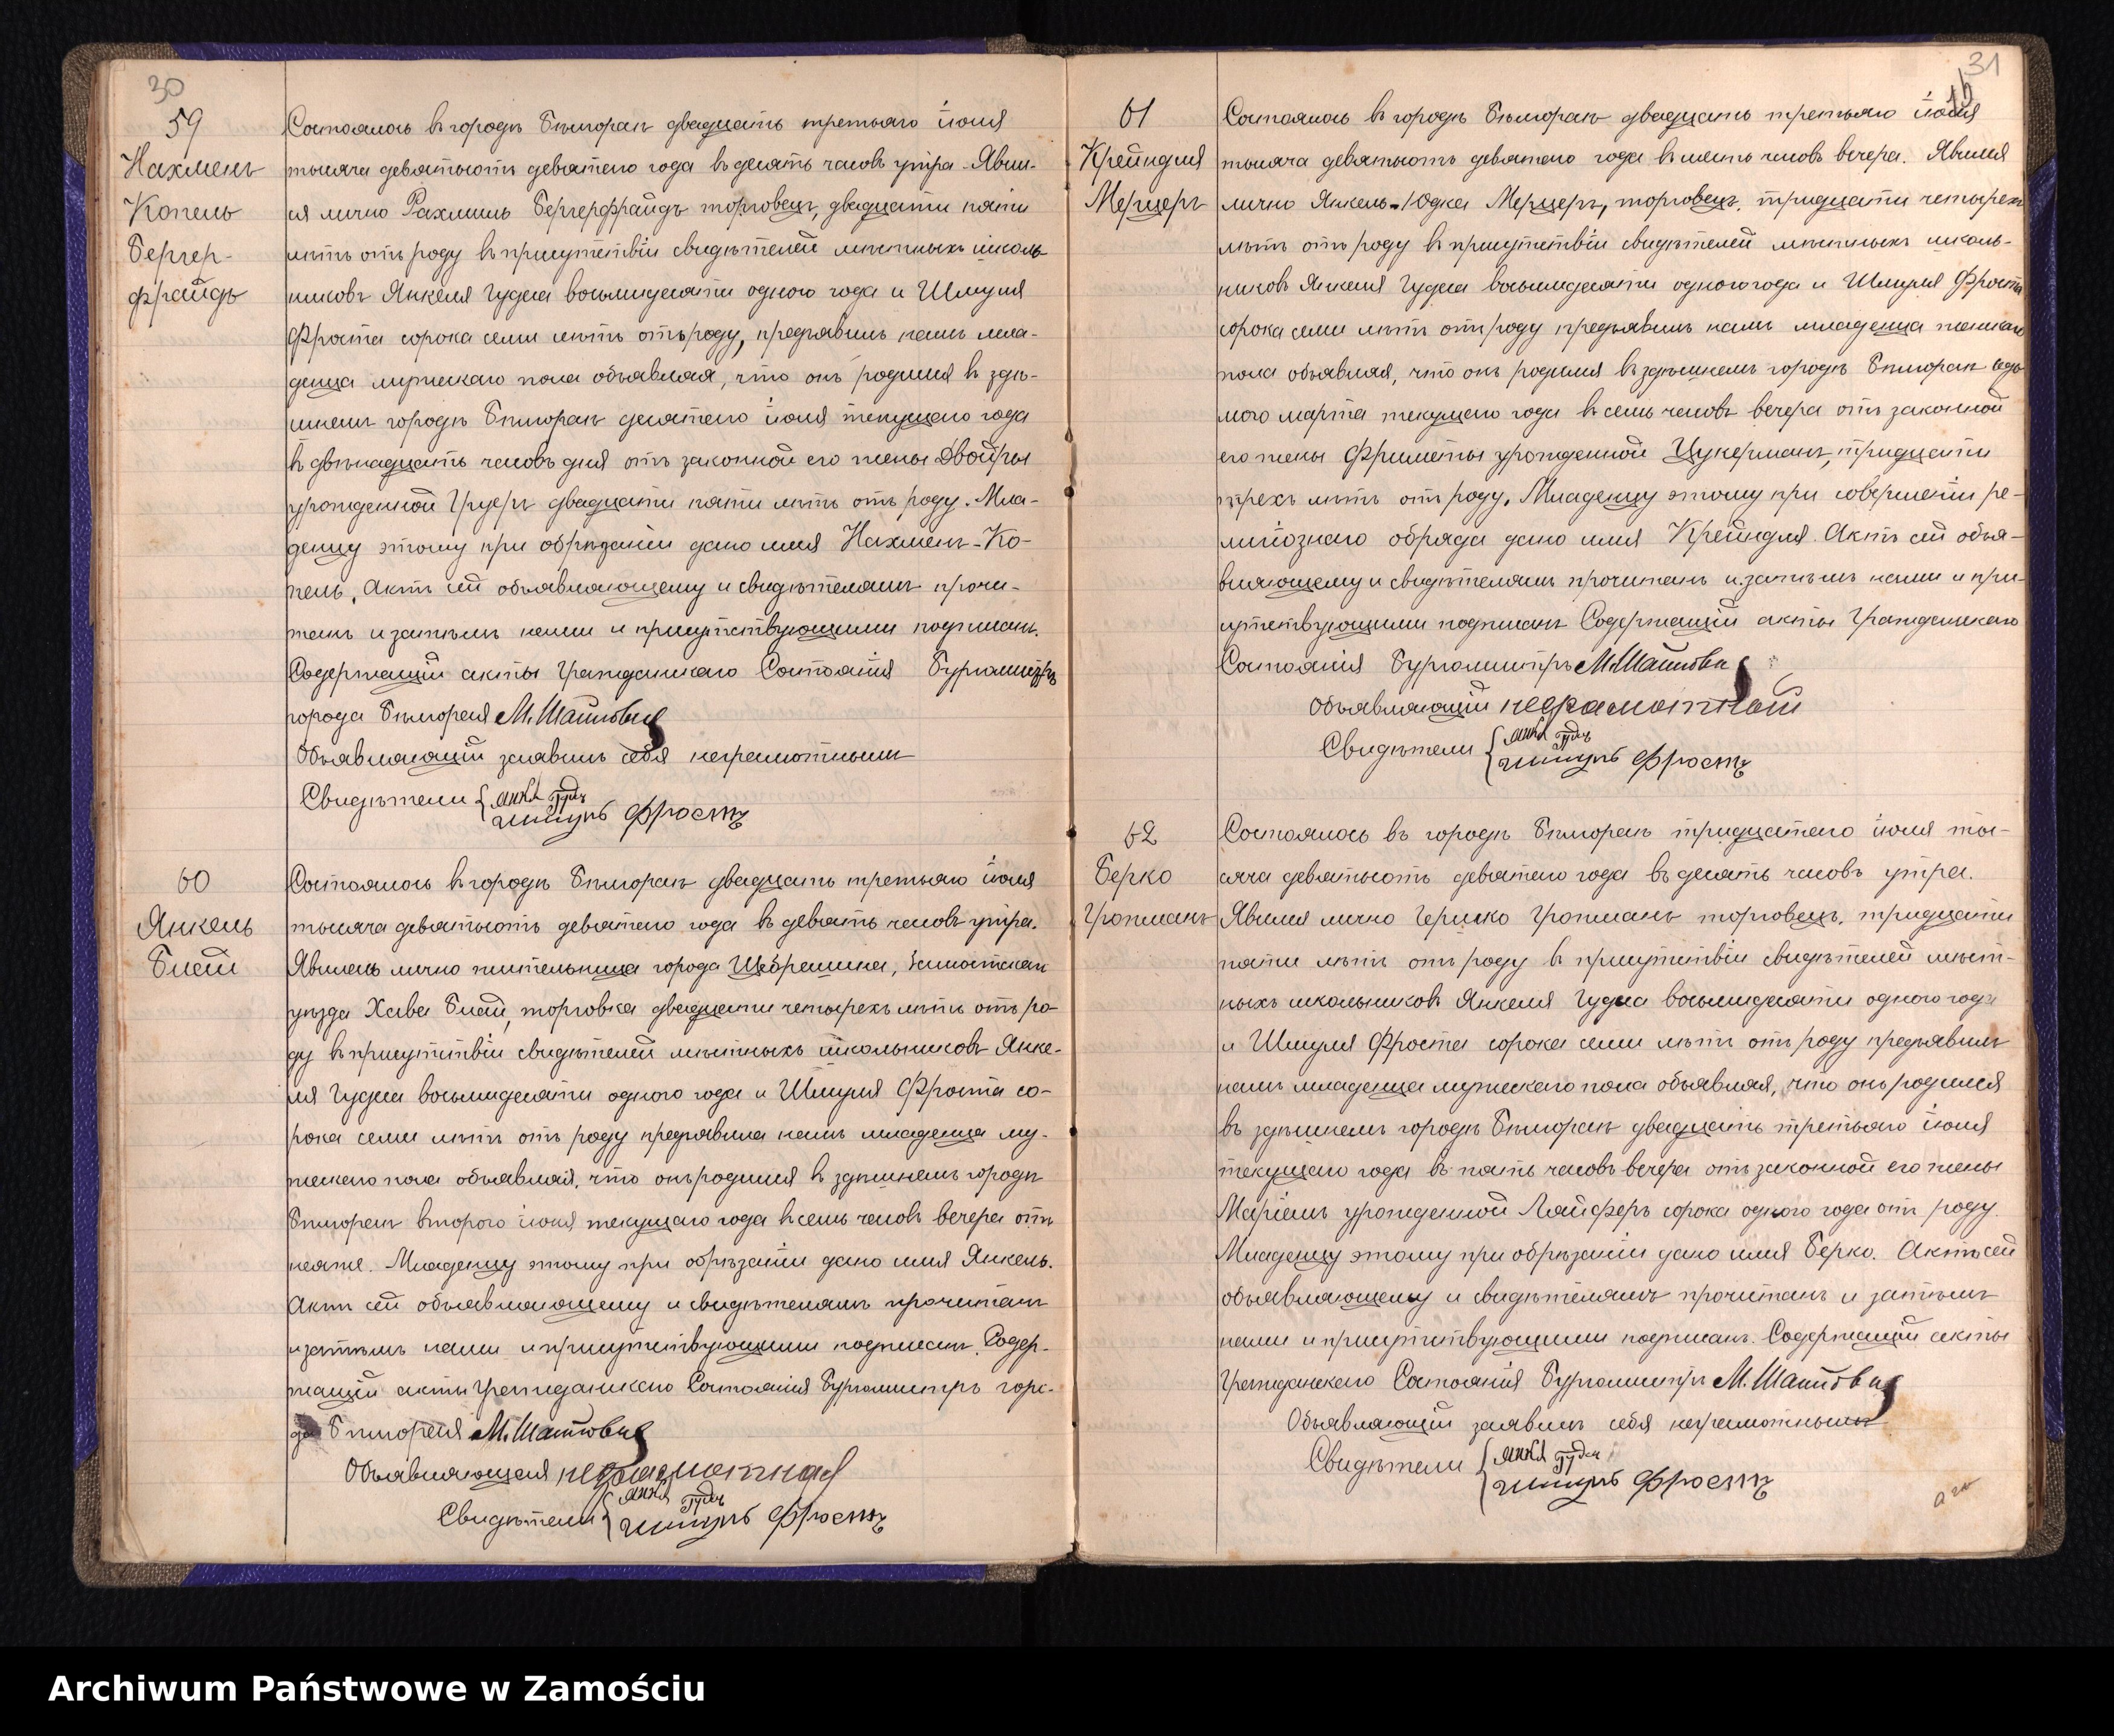 30
59
Нахмень
Копель
Бергер-
фрайдъ
Состоялось въ городѣ Бѣлгораѣ двадцать третьяго іюля
тысяча девятьсотъ девятаго года въ десять часовъ утра. Явил-
ся лично Рахмиль Бергерфрайдъ торговецъ, двадцати пяти
лѣтъ отъ роду въ присутствіи свидѣтелей мѣстныхъ школь-
никовъ Янкеля Гудеса восьмидесяти одного года и Шмуля
Фроста сорока семи лѣтъ отъ роду, предъявилъ намъ мла-
денца мужескаго пола объявляя, что онъ родился въ здѣ-
шнемъ городѣ Бѣлгораѣ десятаго іюля текущаго года
въ двѣнадцать часовъ дня отъ законной его жены Двойры
урожденной Груеръ двадцати пяти лѣтъ отъ роду. Мла-
денцу этому при обрѣзаніи дано имя Нахмень-Ко-
пель. Актъ сей объявляющему и свидѣтелямъ прочи-
танъ и затѣмъ нами и присутствующими подписанъ.
Содержащій акты Гражданскаго Состоянія Бургомистръ
города Бѣлгорая М. Шатковъ
Объявляющій заявилъ себя неграмотнымъ
Свидѣтели Янкл Гудес
Шмуль Фростъ
60
Янкель
Блай
Состоялось въ городѣ Бѣлгораѣ двадцать третьяго іюля
тысяча девятьсотъ девятаго года въ девять часовъ утра.
Явилась лично жительница города Щебрешина, Замостскаго
уѣзда Хава Блай, торговка двадцати четырехъ лѣтъ отъ ро-
ду въ присутствіи свидѣтелей мѣстныхъ школьниковъ Янке-
ля Гудеса восьмидесяти одного года и Шмуля Фроста со-
рока семи лѣтъ отъ роду предъявила намъ младенца му-
жескаго пола объявляя, что онъ родился въ здѣшнемъ городѣ
Бѣлгораѣ второго іюня текущаго года въ семь часовъ вечера отъ
неяже. Младенцу этому при обрѣзаніи дано имя Янкель.
Актъ сей объявляющему и свидѣтелямъ прочитанъ
и затѣмъ нами и присутствующими подписанъ. Содер-
жащій акты Гражданскаго Состоянія Бургомистръ горо-
да Бѣлгорая М. Шатковъ
Объявляющая неграмотная
Свидѣтели Янкл Гудес
Шмуль Фростъ
31
61
Крейндля
Мерцеръ
Состоялось въ городѣ Бѣлгораѣ двадцать третьяго іюля
тысяча девятьсотъ девятаго года въ шесть часовъ вечера. Явился
лично Янкель-Юдка Мерцеръ, торговецъ, тридцати четырехъ
лѣтъ отъ роду въ присутствіи свидѣтелей мѣстныхъ школь-
никовъ Янкеля Гудеса восьмидесяти одного года и Шмуля Фроста
сорока семи лѣтъ отъ роду предъявилъ намъ младенца женскаго
пола объявляя, что онъ родился въ здѣшнемъ городѣ Бѣлгораѣ седь-
мого марта текущаго года въ семь часовъ вечера отъ законной
его жены Фриметы урожденной Цукерманъ, тридцати
трехъ лѣтъ отъ роду. Младенцу этому при совершеніи ре-
лигіознаго обряда дано имя Крейндля. Актъ сей объя-
вляющему и свидѣтелямъ прочитанъ и затѣмъ нами и при-
сутствующими подписанъ Содержащій акты Гражданскаго
Состоянія Бургомистръ М. Шатковъ
Объявляющій неграмотный
Свидѣтели Янкл Гудес
Шмуль Фростъ
62
Берко
Гропманъ
Состоялось въ городѣ Бѣлгораѣ тридцатаго іюля ты-
сяча девятьсотъ девятаго года въ десять часовъ утра.
Явился лично Гершко Гропманъ торговецъ, тридцати
пяти лѣтъ отъ роду въ присутствіи свидѣтелей мѣст-
ныхъ школьниковъ Янкеля Гудеса восьмидесяти одного года
и Шмуля Фроста сорока семи лѣтъ отъ роду предъявилъ
намъ младенца мужескаго пола объявляя, что онъ родился
въ здѣшнемъ городѣ Бѣлгораѣ двадцать третьяго іюля
текущаго года въ пять часовъ вечера отъ законной его жены
Маріемъ урожденной Лайферъ сорока одного года отъ роду.
Младенцу этому при обрѣзаніи дано имя Берко. Актъ сей
объявляющему и свидѣтелямъ прочитанъ и затѣмъ
нами и присутствующими подписанъ. Содержащій акты
Гражданскаго Состоянія Бургомистръ М. Шатковъ
Объявляющій заявилъ себя неграмотнымъ
Свидѣтели Янкл Гудес
Шмуль Фростъ
Archiwum Państwowe w Zamościu